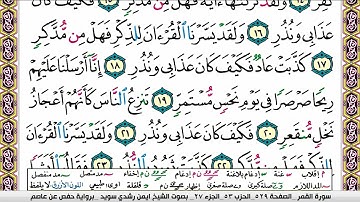 كُفِرَ ١٤ وَلَقَد تَّرَكْنَٰهَآ ءَايَةً فَهَلْ مِن مُّدَّكِرٍ ١٥ فَكَيْفَ كَانَ
عَذَابِي وَنُذُرِ ١٦ وَلَقَدْ يَسَّرْنَا ٱلْقُرْءَانَ لِلذِّكْرِ فَهَلْ مِن مُّدَّكِرٍ
١٧ كَذَّبَتْ عَادٌ فَكَيْفَ كَانَ عَذَابِي وَنُذُرِ ١٨ إِنَّآ أَرْسَلْنَا عَلَيْهِمْ
رِيحًا صَرْصَرًا فِي يَوْمِ نَحْسٍ مُّسْتَمِرٍّ ١٩ تَنزِعُ ٱلنَّاسَ كَأَنَّهُمْ أَعْجَازُ
نَخْلٍ مُّنقَعِرٍ ٢٠ فَكَيْفَ كَانَ عَذَابِي وَنُذُرِ ٢١ وَلَقَدْ يَسَّرْنَا ٱلْقُرْءَانَ
سورة القمر الصفحة ٥٢٩ الحزب ٥٣ الجزء ٢٧ بصوت الشيخ ايمن رشدي سويد - برواية حفص عن عاصم